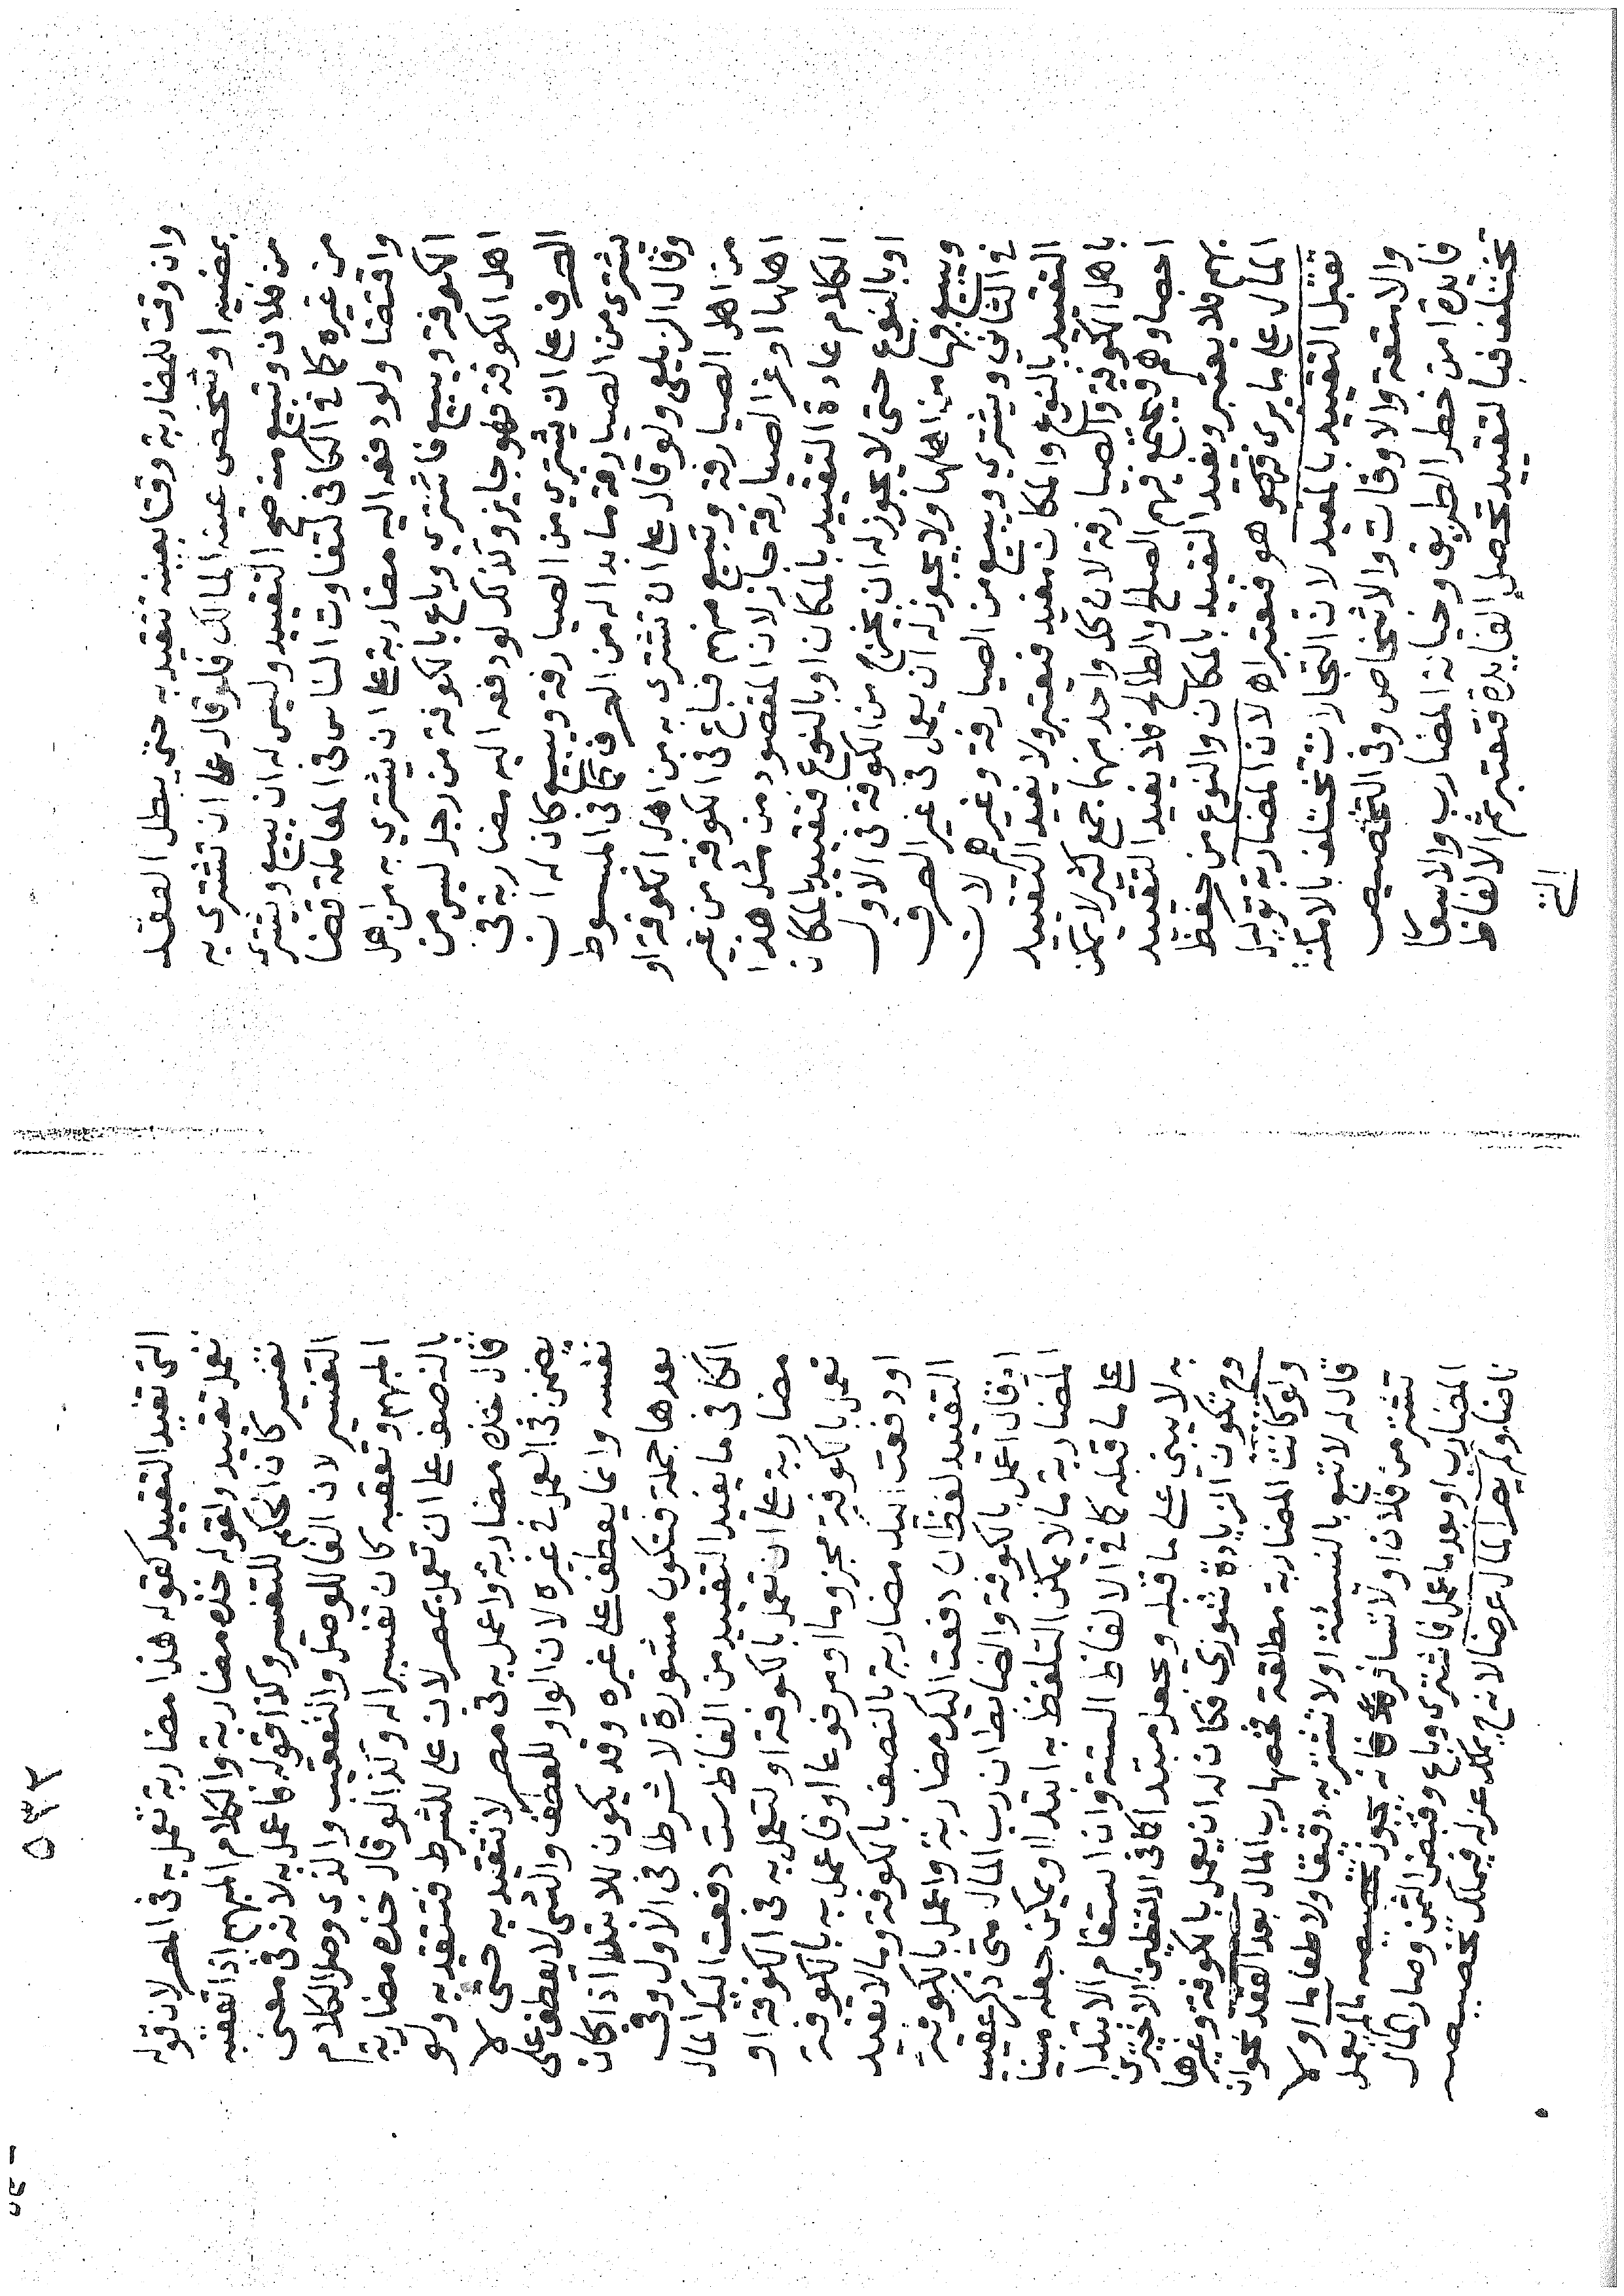 وان وقت للمضاربة وقتا بعينه تتقيد به حتى يبطل العقد
بمضيه او شخص عينه المالك فلو قال على ان تشترى به
من فلان وتبيع منه صح التقييد وليس له ان يبيع ويشترى
من غيره كما فى الكافى لتفاوت الناس فى المعاملة قضا
واقتضا ولو دفعه اليه مضاربة على ان يشتري به من اهل
الكوفة ويبيع فاشترى وباع بالكوفة من رجل ليس من
اهل الكوفة فهو جايز وكذلك لو دفعه اليه مضاربة فى
الصرف على ان يشتري من الصيارفة ويبيع كان له ان
يشترى من الصيارفة ما بدا له من الصرف كما فى المبسوط
وقال الزيلعى ولو قال على ان تشترى به من اهل الكوفة او
من اهل الصيارفة وتبيع منهم فباع فى الكوفة من غير
اهلها او غير الصيارفة جاز لان المقصود من مثل هذا
الكلام عادة التقييد بالمكان او بالنوع فتقيد بالمكان
او بالنوع حتى لا يجوز له ان يخرج من الكوفة فى الاول
ويبيع فيها من اهلها ولا يجوز له ان يعمل فى غير الصرف
فى الثانى ويشترى ويبيع من الصيارفة وغيرهم لان
التقييد بالنوع والمكان مفيد فيعتبر ولا يفيد التقييد
باهل الكوفة والصيارفة لان كل واحد منهما جمع كثير لا يمكن
احصاوهم ويجتمع فيهم الصالح والطالح فلا يفيد التقييد
بهم فلا يعتبر ويفيد التقييد بالمكان والنوع من حفظ
المال على ما يرى فيعتبر لان المضاربة توكيل
تقبل التقييد بالمفيد لان التجارات تختلف بالامكنة
والامتعة والاوقات والاشخاص وفى التخصيص
فايدة امن خطر الطريق وخيانة المضارب والاسعار
تختلف فبالتقييد تحصل الفايدة فتعتبر ثم الالفاظ
التى
٥٣٢
التى تفيد التقييد كقوله هذا مضاربة تعمل به فى المصر لان قوله
تعمل تقييد ولقوله خذه مضاربة والكلام المبهم اذا تعقبه
تفسير كان الحكم للتفسير وكذا قوله فاعمل به لانه فى معنى
التفسير لان الفا للوصل والتعقيب والذى وصل الكلام
المبهم وتعقبه كان تفسيرا له وكذا لو قال خذه مضاربة
بالنصف على ان تعمل بمصر لان على للشرط فتتقيد به ولو
قال خذه مضاربة واعمل به فى مصر لا تتقيد به حتى لا
يضمن فى العمل فى غيره لان الواو للعطف والشى لا يعطف على
نفسه وانما يعطف على غيره وقد يكون للابتدا اذا كان
بعدها جملة فتكون مشورة لا شرطا فى الاول وفى
الكافى ما يفيد التقييد من الفاظ ست دفعت اليك المال
مضاربة على ان تعمل بالكوفة او لتعمل به فى الكوفة او
تعمل بالكوفة مجزوما او مرفوعا او فاعمل به بالكوفة
او دفعت اليك مضاربة بالنصف بالكوفة وما لا يفيد
التقييد لفظان دفعت اليك مضاربة واعمل بالكوفة
او قال اعمل بالكوفة والضابط ان رب المال متى ذكر عقيب
المضاربة ما لا يمكن التلفظ به ابتدا ويمكن جعله مبنيا
على ما قبله كما فى الالفاظ الستة وان استقام الابتدا
به لا يبنى على ما قبله ويجعل مبتدا كما فى اللفظين الاخيرين
وح تكون الزيادة شورى فكان له ان يعمل بالكوفة وغيرها
ولو كانت المضاربة مطلقة فخصها رب المال بعد العقد نحو ان
قال له لا تبع بالنسئة او لا تشتر به دقيقا ولا طعاما او لا
تشتر من فلان او لا تسافر فانه يجوز تخصيصه ما لم يعمل
المضارب او بعد ما عمل فاشترى وباع وقبض الثمن وصار المال
ناضا ولو لم يصر المال عرضا لانه ح يملك عزله فيملك تخصيصه